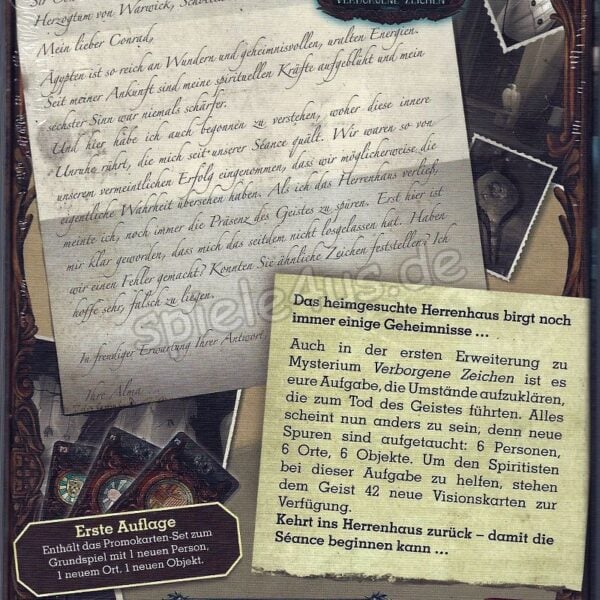 VERBORGENE ZEICHEN
Herzogtum von Warwick,
Mein lieber Conrad,
Ägypten ist so reich an Wundern und geheimnisvollen, uralten Energien.
Seit meiner Ankunft sind meine spirituellen Kräfte aufgeblüht und mein
sechster Sinn war niemals schärfer.
Und hier habe ich auch begonnen zu verstehen, woher diese innere
Unruhe rührt, die mich seit unserer Séance quält. Wir waren so von
unserem vermeintlichen Erfolg eingenommen, dass wir möglicherweise die
eigentliche Wahrheit übersehen haben. Als ich das Herrenhaus verließ,
meinte ich, noch immer die Präsenz des Geistes zu spüren. Erst hier ist
mir klar geworden, dass mich das seitdem nicht losgelassen hat. Haben
wir einen Fehler gemacht? Konnten Sie ähnliche Zeichen feststellen? Ich
hoffe sehr, falsch zu liegen.
In freudiger Erwartung Ihrer Antwort
Ihre Alma
spiele4us.de
Das heimgesuchte Herrenhaus birgt noch
immer einige Geheimnisse ...
Auch in der ersten Erweiterung zu
Mysterium Verborgene Zeichen ist es
eure Aufgabe, die Umstände aufzuklären,
die zum Tod des Geistes führten. Alles
scheint nun anders zu sein, denn neue
Spuren sind aufgetaucht: 6 Personen,
6 Orte, 6 Objekte. Um den Spiritisten
bei dieser Aufgabe zu helfen, stehen
dem Geist 42 neue Visionskarten zur
Verfügung.
Kehrt ins Herrenhaus zurück – damit die
Séance beginnen kann ...
Erste Auflage
Enthält das Promokarten-Set zum
Grundspiel mit 1 neuen Person,
1 neuem Ort, 1 neuen Objekt.